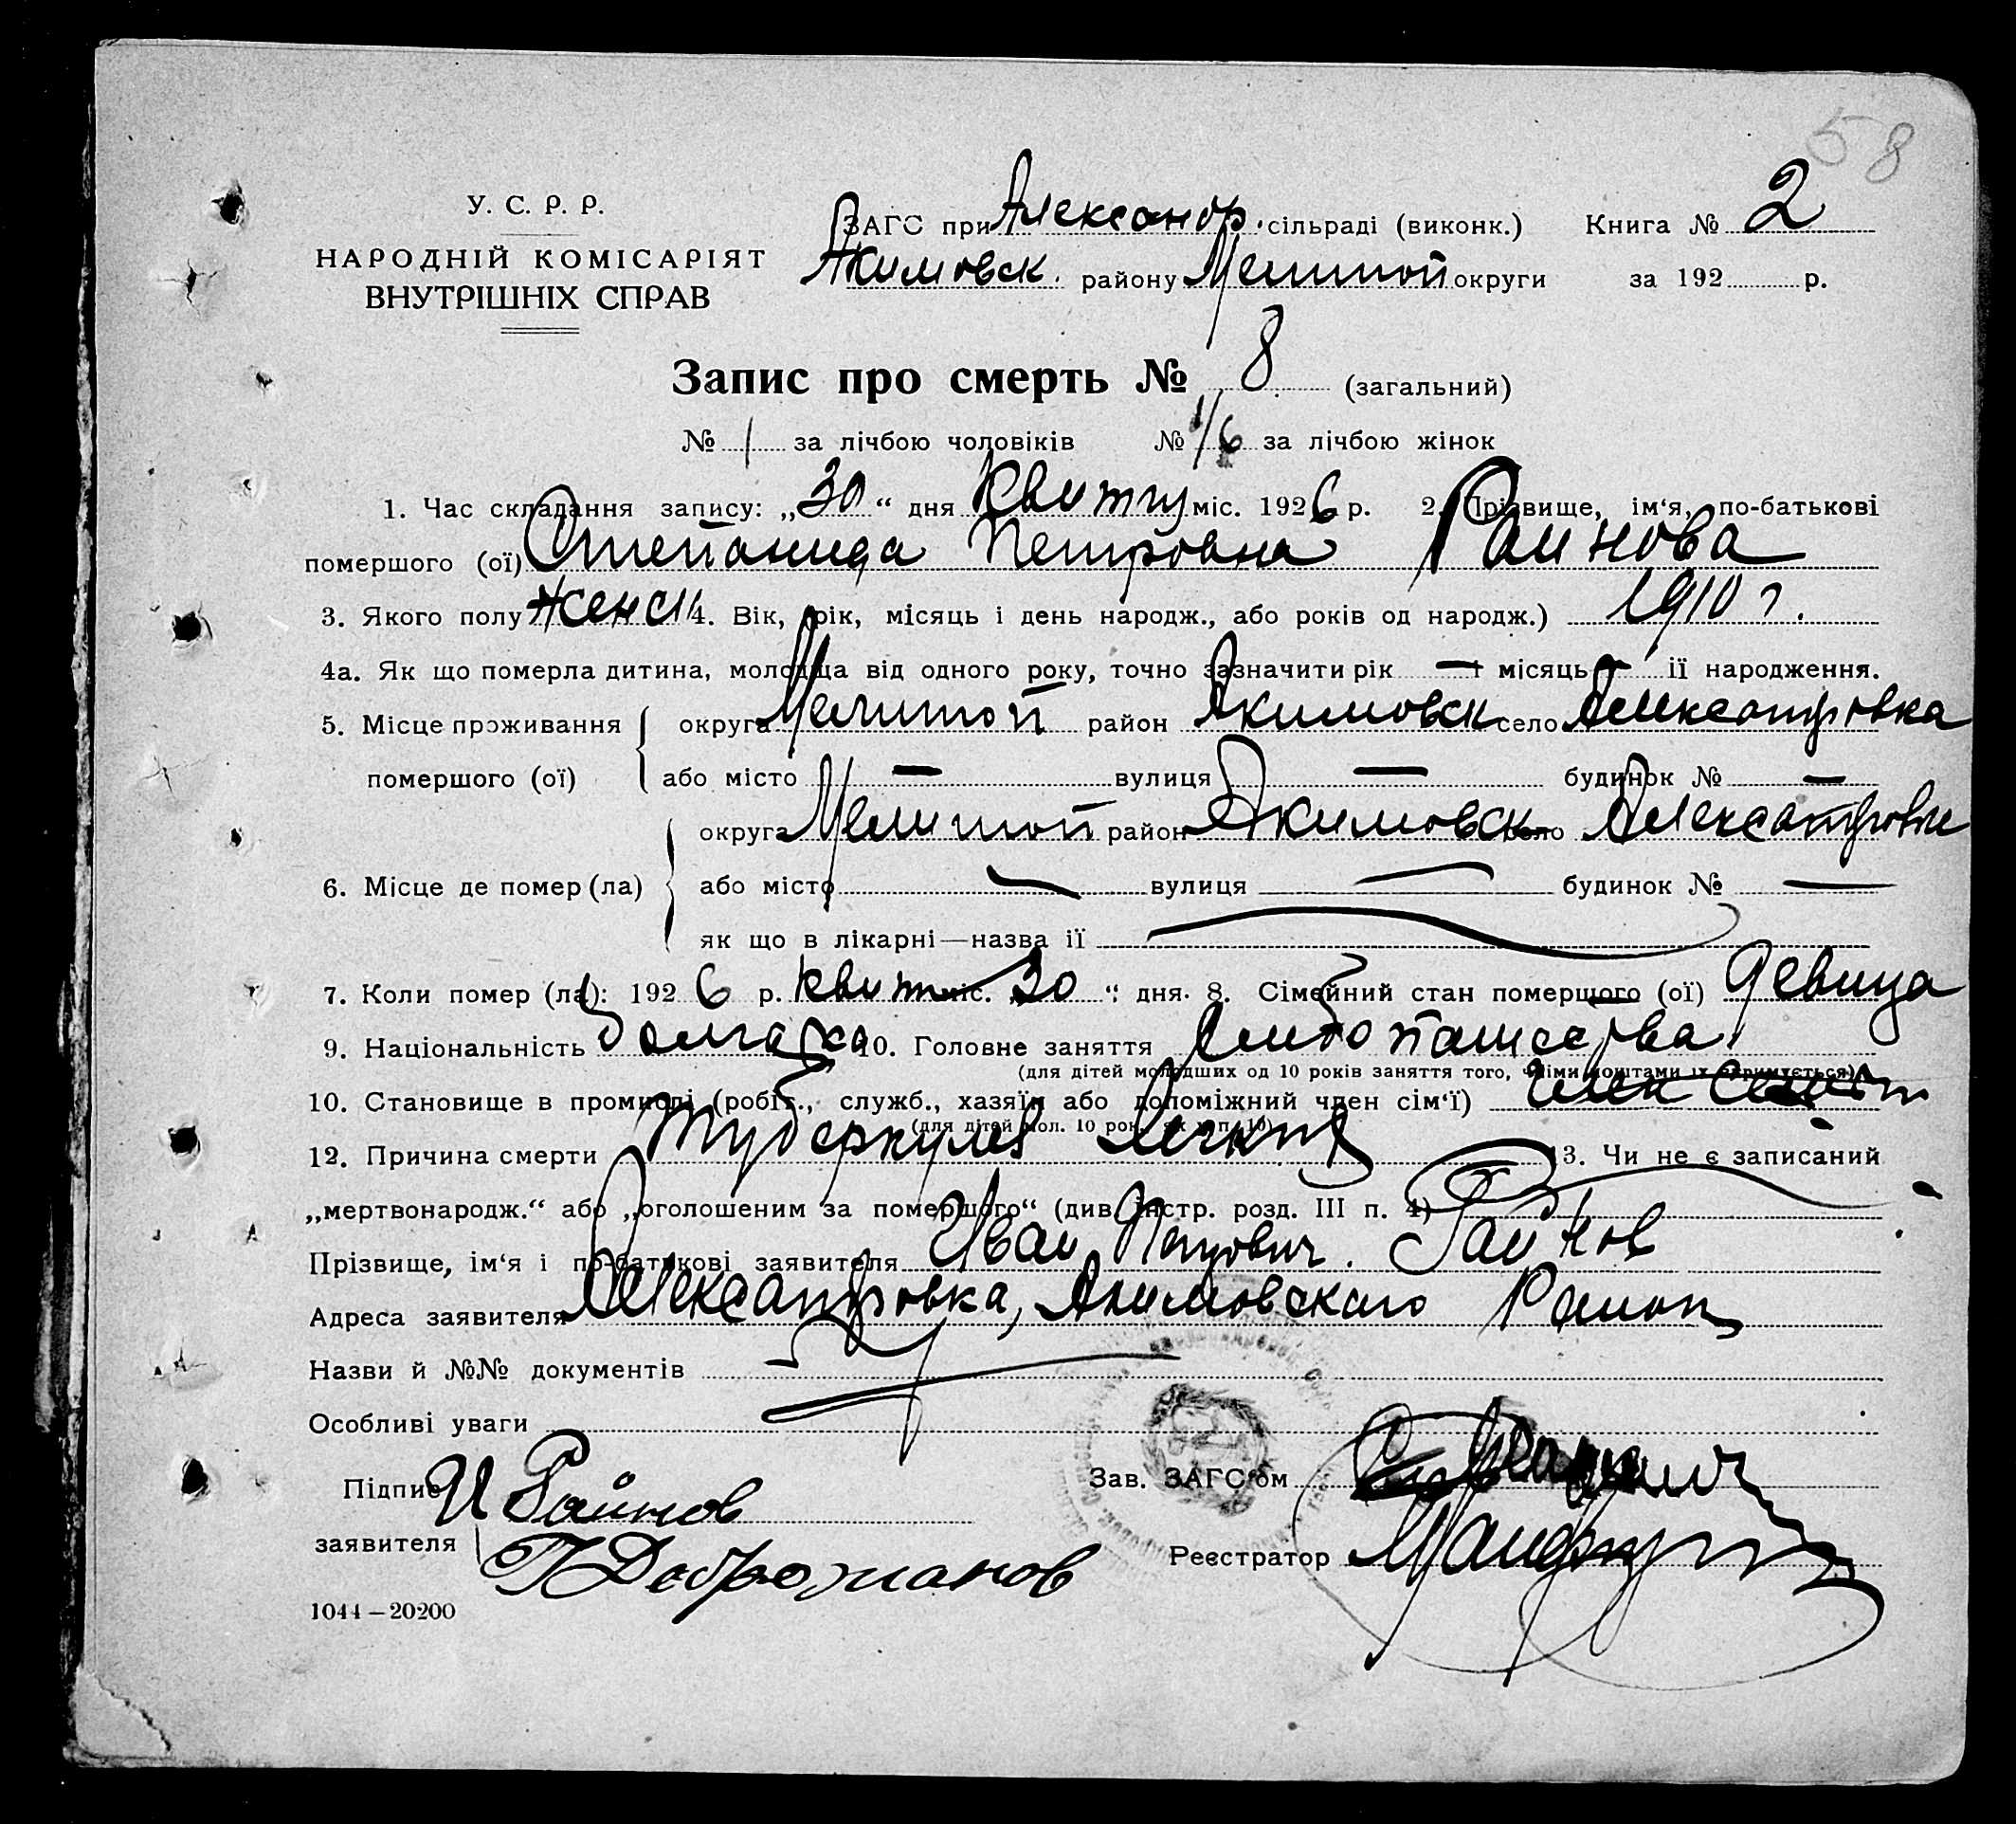 58
У. С. Р. Р.
НАРОДНІЙ КОМІСАРІЯТ
ВНУТРІШНІХ СПРАВ
ЗАГС при Александр. сільраді (виконк.) Книга № 2
Акимовск. району Мелитоп округи за 192 р.
Запис про смерть № 8 (загальний)
№ 1 за лічбою чоловіків № 6 за лічбою жінок
1. Час складання запису: „30“ дня міс. 1926 р. 2. Прізвище, ім‘я, по-батькові
помершого (ої) Степанида Петровна Раинова
3. Якого полу женск 4. Вік, (рік, місяць і день народж., або років од народж.) 1910 г.
4а. Як що померла дитина, молодша від одного року, точно зазначити рік — і місяць — ії народження.
5. Місце проживання округа Мелитоп район Акимовск село Александровка
помершого (ої) або місто — вулиця — будинок № —
округа Мелитоп район Акимовск село
6. Місце де помер (ла) або місто — вулиця — будинок № —
як що в лікарні—назва ії
7. Коли помер (ла): 1926 р. міс. „30“ дня. 8. Сімейний стан помершого (ої) девица
9. Національність болгарка 10. Головне заняття
(для дітей молодших од 10 років заняття того, чиїми коштами їх
10. Становище в промислі (робіт., служб., хазяїн або допоміжний член сім‘ї) член
(для дітей мол. 10 рок. як у п. 10)
12. Причина смерти туберкулез легких 13. Чи не є записаний
„мертвонародж.“ або „оголошеним за помершого“ (див. інстр. розд. III п. 4)
Прізвище, ім‘я і по-батькові заявителя Иван Петрович. Райнов
Адреса заявителя Александровка, Акимовскаго Района
Назви й №№ документів
Особливі уваги
Підпис И Райнов Зав. ЗАГС‘ом
заявителя Реєстратор
1044—20200